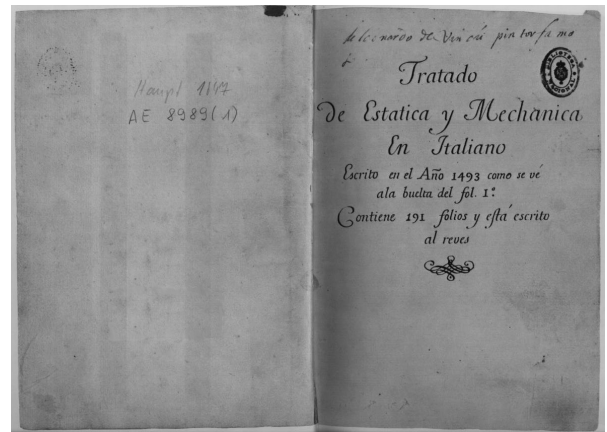 AE 8989(1)
de leonardo de Vinci pintor famo
Tratado
De Estatica y Mechanica
En Italiano
Escrito en el Año 1493 como se vé
ala buelta del fol. 1º.
Contiene 191 folios y eſtá escrito
al reves
BIBLIOTECA
NACIONAL